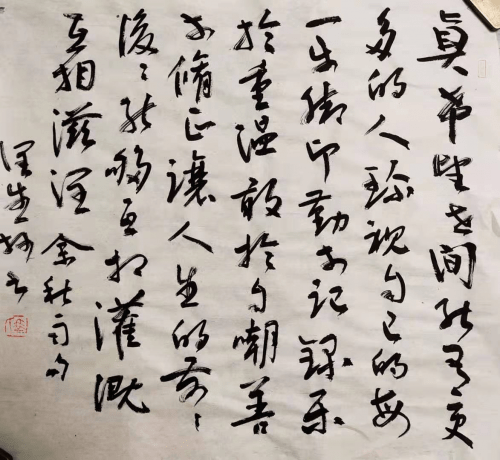 真希望世间能有更
多的人珍视自己的每
一步脚印勤于记录乐
于重温敢于自嘲善
于修正让人生的前前
后后能够互相灌溉
互相滋润余秋雨句
润生抄书